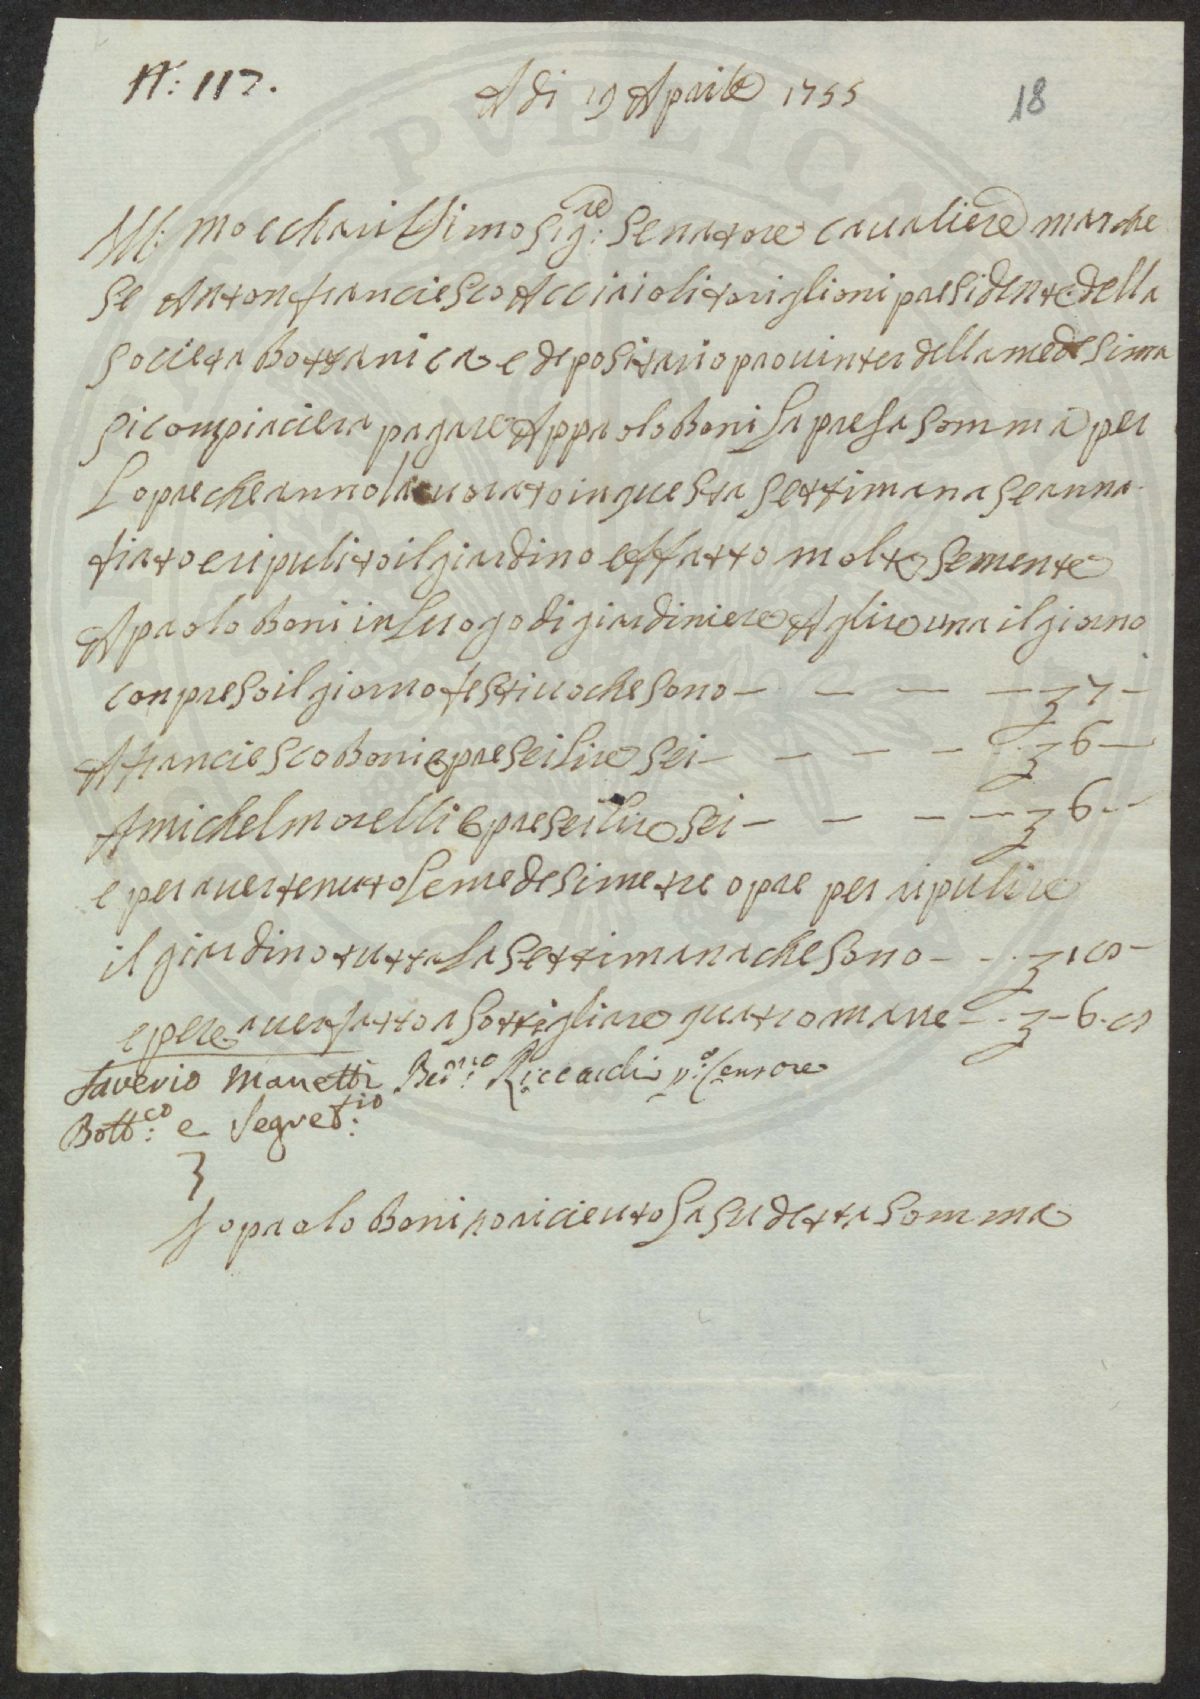 N: 117.
A di 19 Aprile 1755
18
Ill: mo e charissimo Sig:re Senatore cavaliere marche
se Antonfranciesco Acciaioli toriglioni presidente della
Societa Bottanica e depositario provinter della medesima
si compiaciera pagare Appaolo Boni la presa somma per
Lopre che anno lavorato in questa settimana se anna
fiato e ripulito il giardino effatto molte semente
A paolo Boni in Luogo di giardiniere A lire una il giorno
conpreso il giorno festivo che sono — — — — 7 —
A franciesco Boni opre sei lire sei — — — — 6 —
A michel morelli opre sei lire sei — — — — 6 —
e per aver tenuto le medesime tre opre per ripulire
il giardino tutta la settimana che sono — -
e per aver fatto asottigliare quatro marre —
Saverio Manetti
Bott:co e Segret:rio
Ber:do Riccardi p:o Censore
Io paolo Boni ho riceuto la sudetta somma